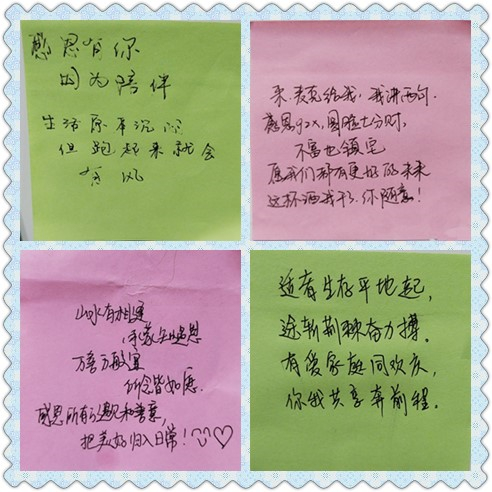 感恩有你
因为陪伴
生活原本沉闷
但跑起来就会
有风
来,麦克给我,我讲两句.
感恩gzx,圆脸七分财,
不富也镇宅
愿我们都有更好的未来
这杯酒我干,你随意!
山水有相逢
万事
所念皆如愿.
感恩所有的遇见和善意,
把美好归入日常!
适者生存平地起,
途斩荆棘奋力搏。
有爱家庭同欢庆,
你我共享奔前程。